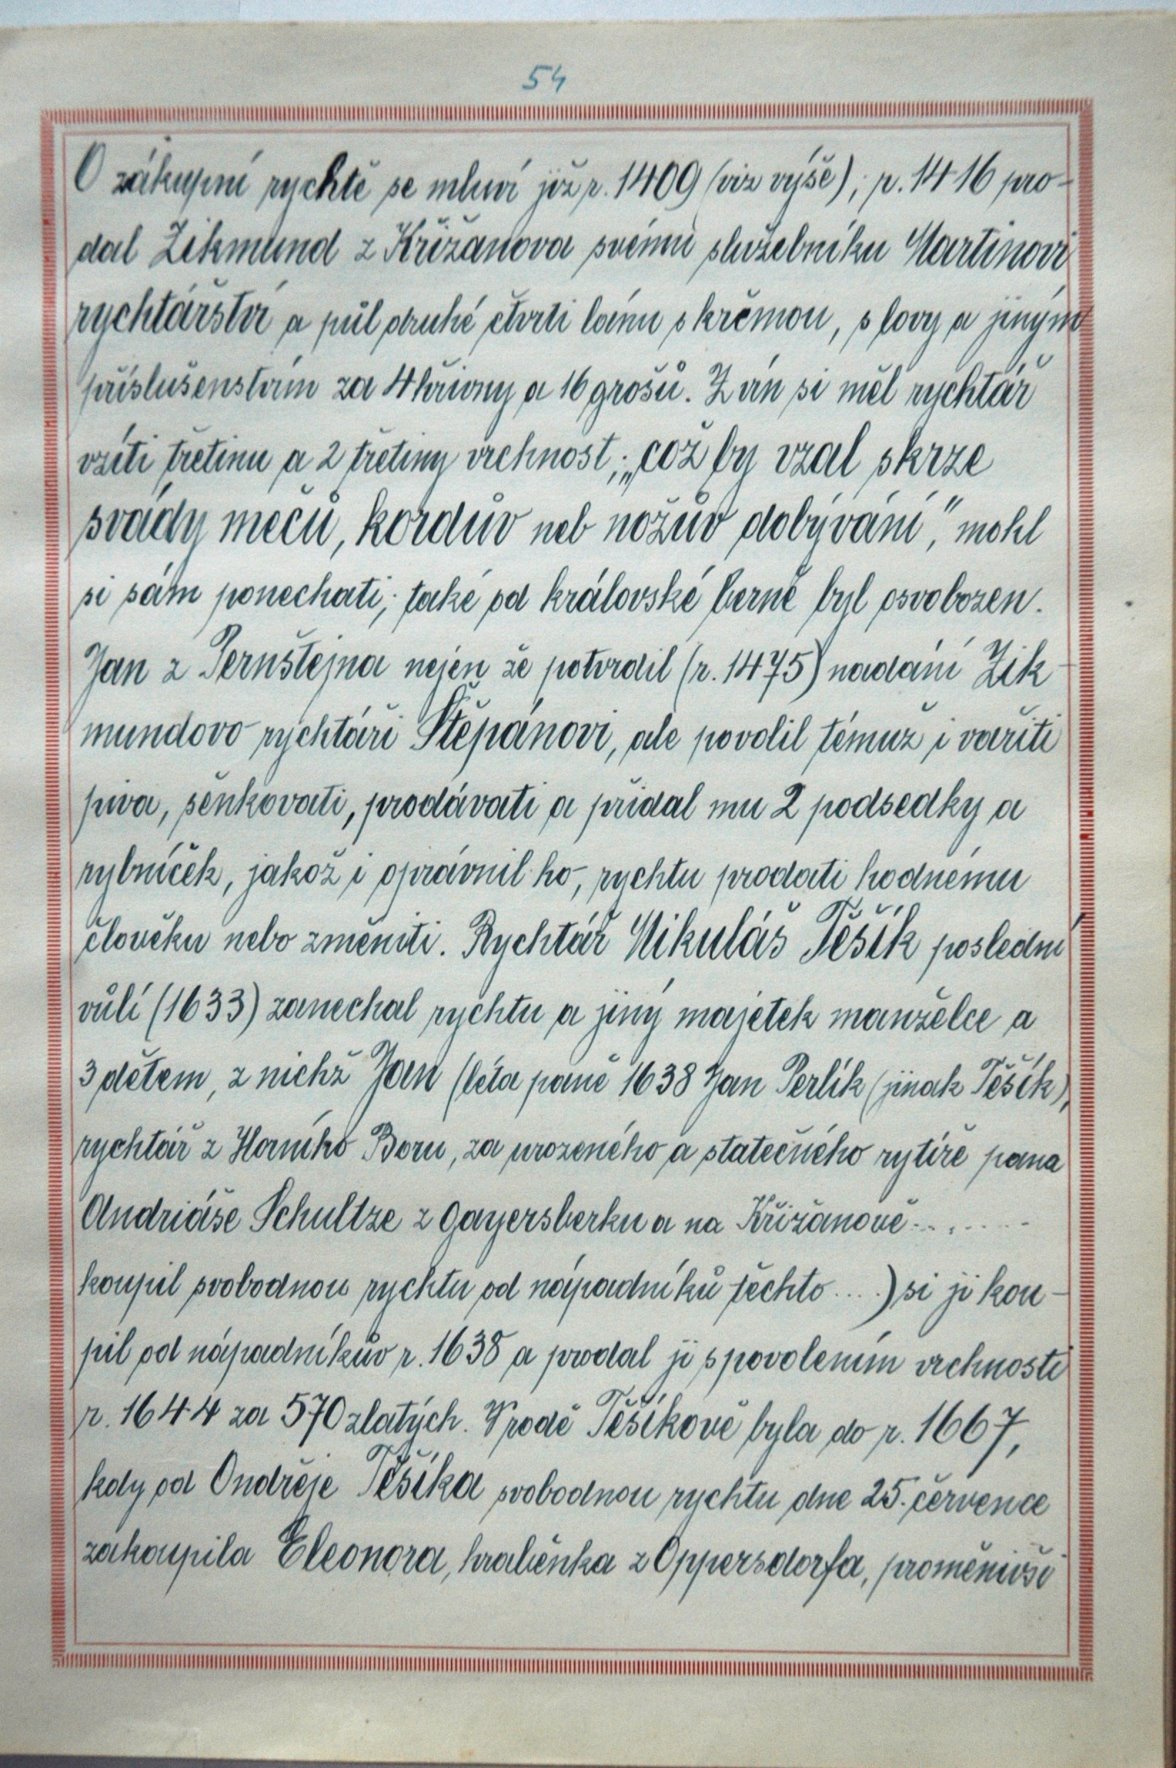 54
O zákupní rychtě se mluví již r. 1409 (viz výše); r. 1416 pro-
dal Zikmund z Křižanova svému služebníku Martinovi
rychtářství a půl druhé čtvrti lánu s krčmou, s lovy a jiným
příslušenstvím za 4 hřivny a 16 grošů. Z vin si měl rychtář
vzíti třetinu a 2 třetiny vrchnost; „což by vzal skrze
svády mečů, kordův neb nožův dobývání," mohl
si sám ponechati; také od královské berně byl osvobozen.
Jan z Pernštejna nejen že potvrdil (r. 1475) nadání Zik-
mundovo rychtáři Štěpánovi, ale povolil témuž i vařiti
piva, šenkovati, prodávati a přidal mu 2 podsedky a
rybníček, jakož i oprávnil ho, rychtu prodati hodnému
člověku nebo změniti. Rychtář Mikuláš Těšík poslední
vůlí (1633) zanechal rychtu a jiný majetek manželce a
3 dětem, z nichž Jan (léta páně 1638 Jan Perlík (jinak Těšík),
rychtář z Horního Boru, za urozeného a statečného rytíře pana
Andriáše Schultze z Gayersberku a na Křižanově........
koupil svobodnou rychtu od nápadníků těchto ....) si ji kou-
pil od nápadníkův r. 1638 a prodal ji s povolením vrchnosti
r. 1644 za 570 zlatých. V rodě Těšíkově byla do r. 1667,
kdy od Ondřeje Těšíka svobodnou rychtu dne 25. července
zakoupila Eleonora, hraběnka z Oppersdorfa, proměnivši